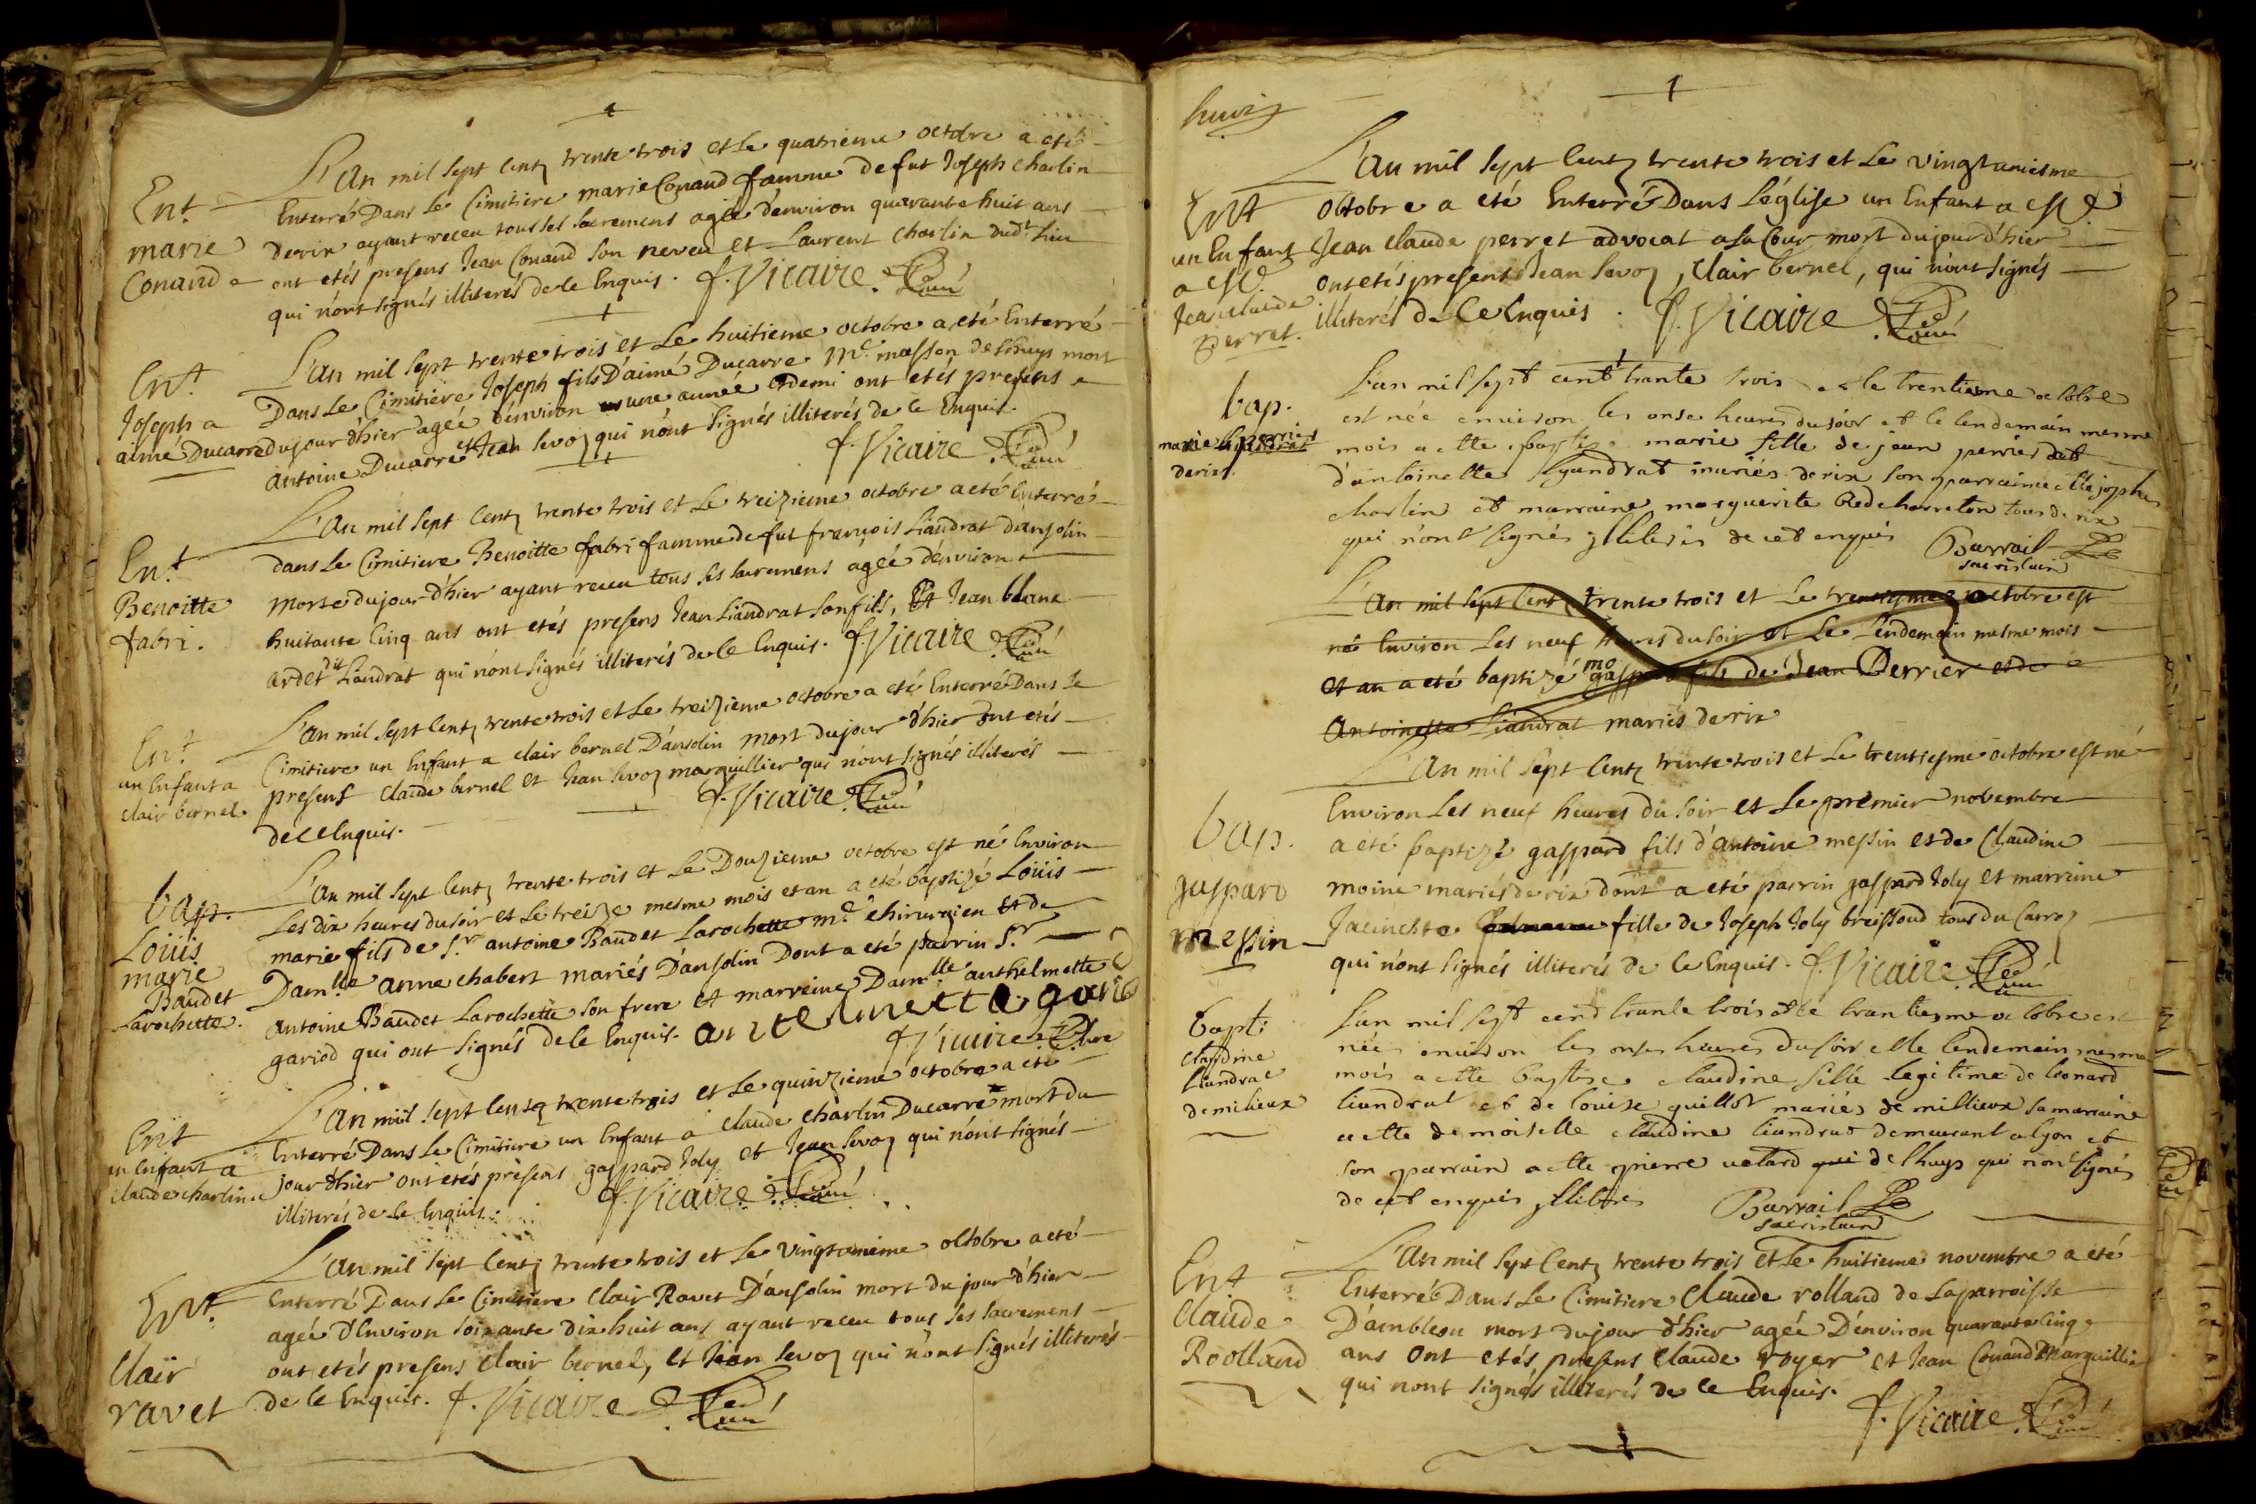 L'an mil sept centz trente trois et le quatrieme octobre a eté
Ent.
marie
Conand
Enterré Dans Le Cimitiere marie Conand famme de fut Joseph charlin
derix ayant receu tous ses sacremens agée d'environ quarante huit ans
ont etés presens Jean Conand son neveu et Laurent charlin dud.t Lieu
qui n'ont signés illiterés de ce Enquis. f. Vicaire Curé
Ent.
Joseph a
aimé Ducarre
L'an mil sept trente trois et Le huitieme octobre a eté Enterré
Dans Le Cimitiere Joseph fils D'aimé Ducarre M.e masson de Lhuys mort
du jour d'hier agée d'environ une année et demi ont etés presens
antoine Ducarre et Jean sevoz qui n'ont signés illiterés de ce Enquis.
f. Vicaire Curé
Ent.
Benoitte
fabri.
L'an mil sept centz trente trois et Le treizieme octobre a eté Enterré
dans Le Cimitiere Benoitte fabri famme de fut françois Liandrat d'ansolin
morte du jour d'hier ayant receu tous ses sacremens agée d'environ
huitante cinq ans ont etés presens Jean Liandrat son fils, Et Jean blanc
ardet dit Liandrat qui n'ont signés illiterés de ce Enquis. f. Vicaire Curé
Ent.
un Enfant a
clair bernel
L'an mil sept centz trente trois et Le treizieme octobre a eté Enterré Dans Le
Cimitiere un Enfant a clair bernel D'ansolin mort du jour d'hier ont etés
presens claude bernel et Jean sevoz marguillier qui n'ont signés illiterés
de ce Enquis. f. Vicaire Curé
bap.
Loüis
marie
Baudet
Larochette.
L'an mil sept centz trente trois et Le Douzieme octobre est né Environ
Les dix heures du soir et Le treize mesme mois et an a eté baptizé Loüis
marie fils de S.r antoine Baudet Larochette m.e chirurgien et de
Dam.lle anne chabert mariés D'ansolin Dont a eté parrin S.r
antoine Baudet Larochette son frere et marreine Dam.lle anthelmette
gariod qui ont signés de ce Enquis. antelmette gario
f Vicaire Curé
Ent
un Enfant a
claude charlin
L'an mil sept centz trente trois et Le quinzieme octobre a eté
Enterré Dans Le Cimitiere un Enfant a claude charlin Ducarre mort du
jour d'hier ont etés presens gaspard Joly et Jean sevoz qui n'ont signés
illiterés de ce Enquis. f. Vicaire Curé
Ent.
Clair
ravet
L'an mil sept centz trente trois et Le vingtunieme octobre a eté
Enterré Dans Le Cimitiere Clair Ravet D'ansolin mort du jour d'hier
agée d'Environ soixante dix huit ans ayant receu tous ses sacremens
ont etés presens clair bernel, et Jean sevoz qui n'ont signés illiterés
de ce Enquis. f. Vicaire Curé
huit
Ent
un Enfant
a Me.
Jean claude
perret.
L'an mil sept centz trente trois et Le vingtuniesme
octobre a eté Enterré Dans L'église un Enfant a Me
Jean claude perret advocat a la Cour mort du jour d'hier
ont etés presens Jean sevoz, clair bernel, qui n'ont signés
illiterés de Ce Enquis. f. Vicaire Curé
bap.
marie perrier
derix.
L'an mil sept cent trante trois et le trentieme octobre
est née environ les onse heures du soir et le lendemain mesme
mois a ette baptise marie fille de jean perrier et
d'antoinette lyandrat mariés de rix son parrain a ette joseph
charlin et marraine marguerite Bedcharreton tous de rix
qui n'ont signés ylliterés de cet enquis Barrail
sacristain
L'an mil sept cent trente trois et Le trentiesme octobre est
né Environ Les neuf heures du soir et Le Lendemain mesme mois
et an a eté baptizé gaspard fils de Jean Perrier et de
antoinette Liandrat mariés de rix
bap.
gaspard
messin
L'an mil sept centz trente trois et Le trentiesme octobre est né
Environ Les neuf heures du soir et Le premier novembre
a eté baptizé gaspard fils d'antoine messin et de Claudine
moine mariés de rix dont a eté parrin gaspard Joly et marraine
Jacinchte fille de Joseph Joly breissoud tous du Carroz
qui n'ont signés illiterés de Ce Enquis. f. Vicaire Curé
bapt:
claudine
liandrat
de milieux
L'an mil sept cent trante trois et le trantiesme octobre est
née environ les onse heures du soir et le lendemain mesme
mois a ette baptise claudine fille legitime de leonard
liandrat et de louise guillot mariés de millieux sa marraine
a ette demoiselle claudine liandrat demeurant a lyon et
son parrain a ette pierre uetard qui de lhuys qui n'ont signés
de cet enquis yllitres Barrail
sacristain
Ent
Claude
Roolland
L'an mil sept centz trente trois et Le huitieme novembre a eté
Enterré Dans Le Cimitiere Claude rolland de La parroisse
D'ambleon mort du jour d'hier agée D'environ quarante cinq
ans ont etés presens Claude royer et Jean Conand Marguillier
qui n'ont signés illiterés de ce Enquis.
f. Vicaire Curé